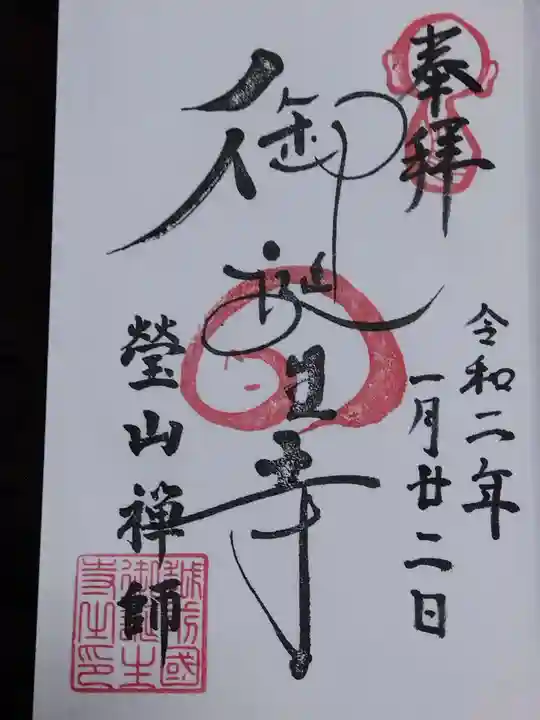 奉拝
令和二年
一月廿二日
御誕生寺
瑩山禅師
越前國
御誕生
寺之印